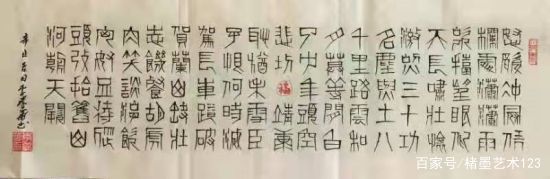 怒髮衝冠憑
欄處瀟瀟雨
歇抬望眼仰
天長嘯壯懷
激烈三十功
名塵與土八
千里路雲和
月莫等閒白
了少年頭空
悲切靖康
恥猶未雪臣
子恨何時滅
駕長車踏破
賀蘭山缺壯
志飢餐胡虜
肉笑談渴飲
匈奴血待從
頭收拾舊山
河朝天闕
福
百家号/楮墨艺术123